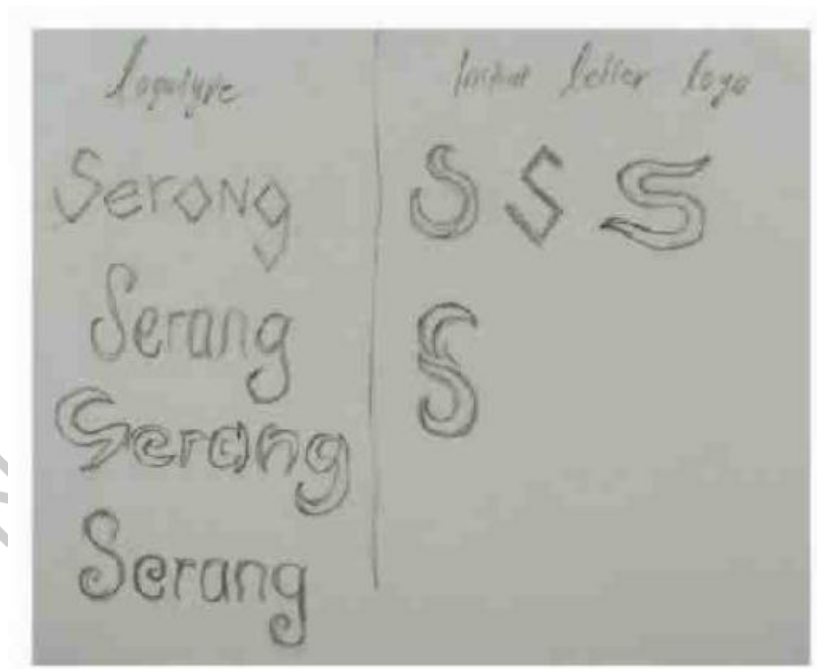 Logotype
Serang
Serang
Serang
Serang
Initial letter logo
S S S
S